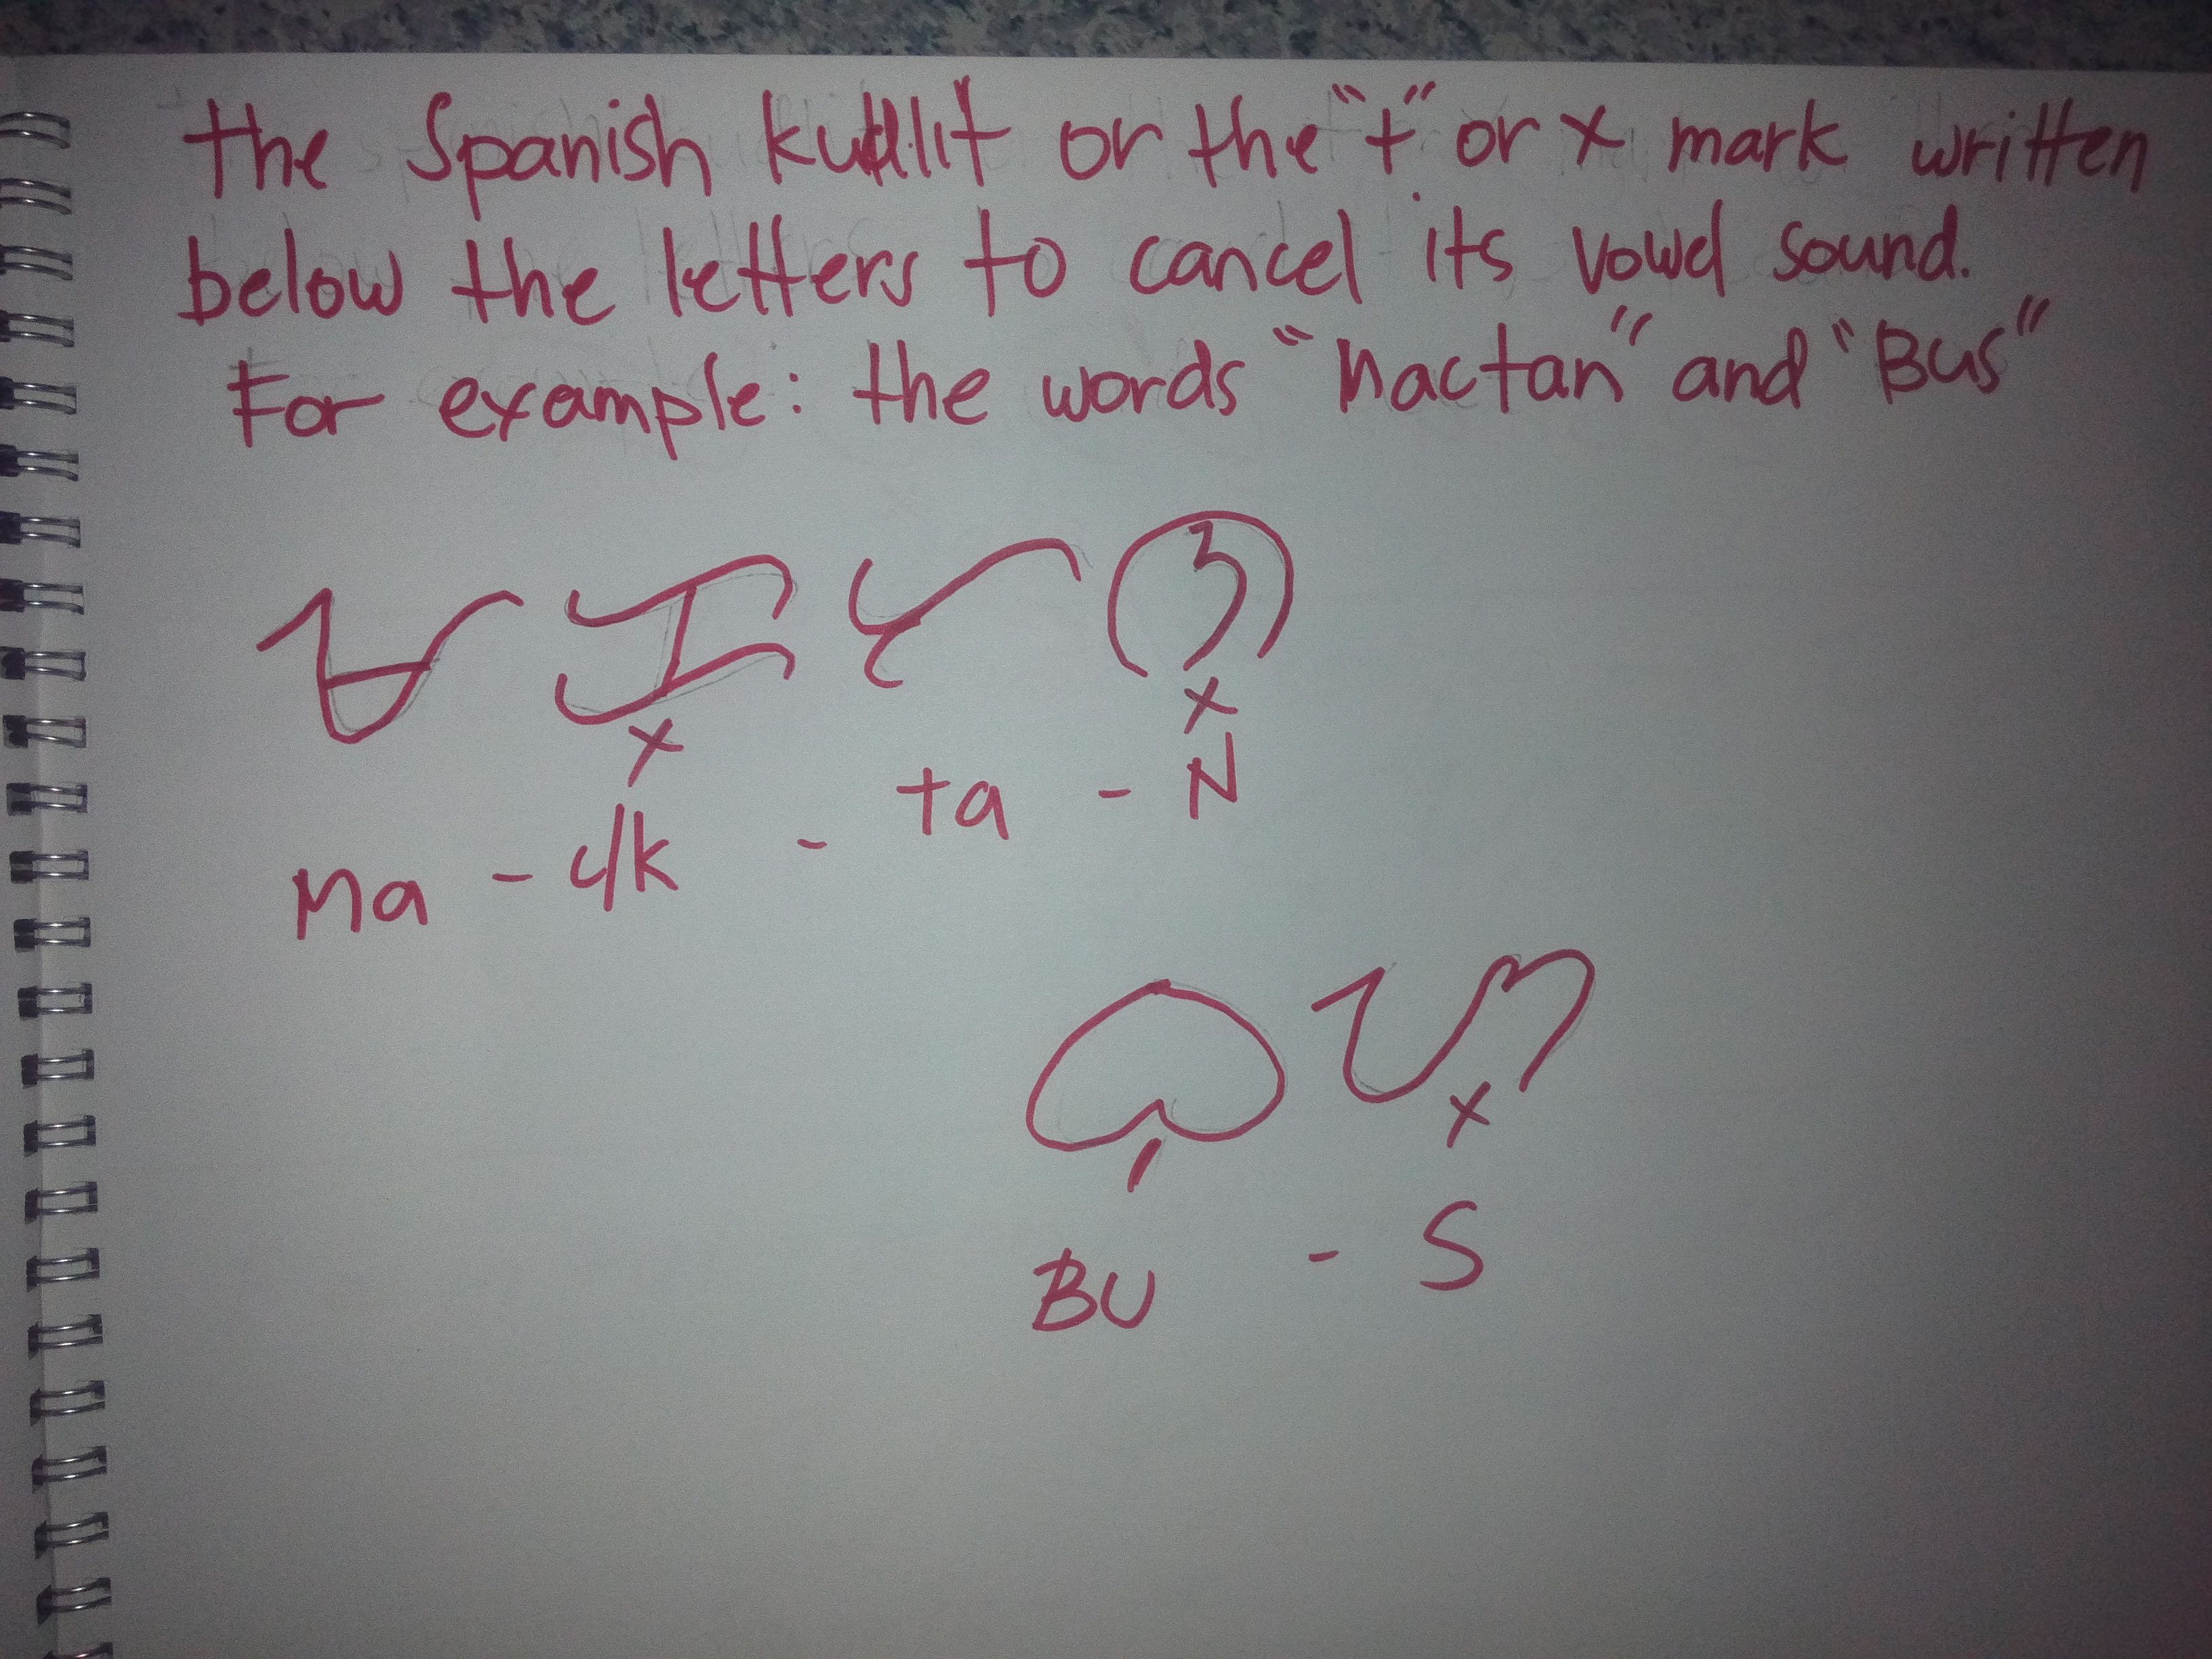 the Spanish kudlit or the "+" or x mark written
below the letters to cancel its vowel sound.
For example: the words "Mactan" and "Bus"
ᜋ ᜃ᜔ ᜆ ᜈ᜔
Ma - c/k - ta - N
ᜊᜓ ᜐ᜔
BU - S